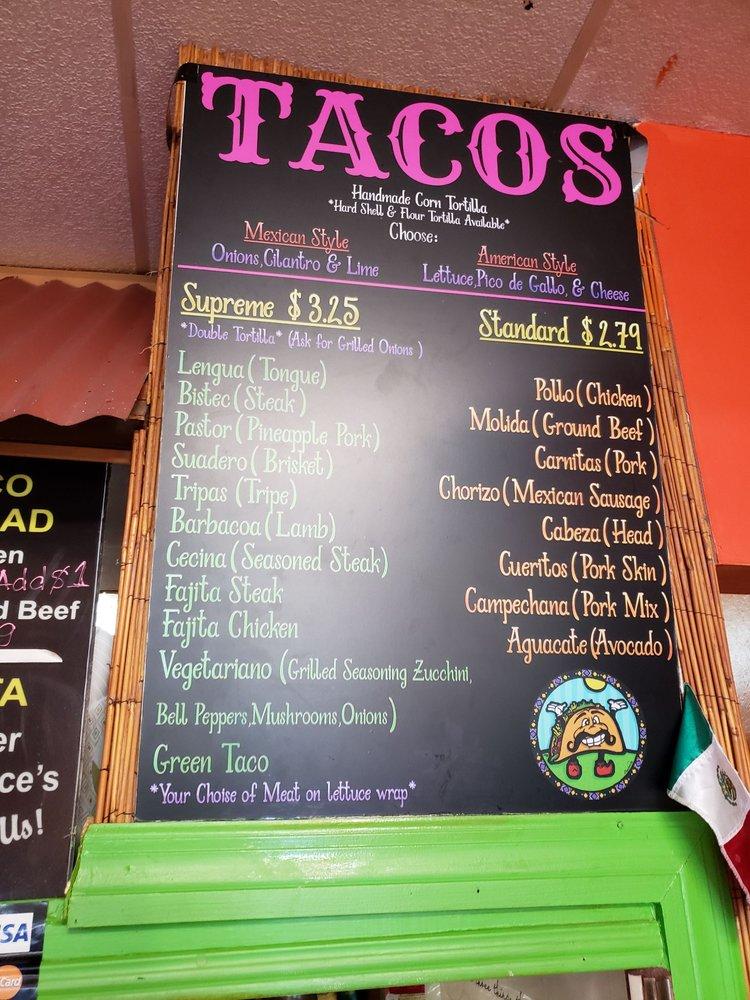 TACOS
Handmade Corn Tortilla
*Hard Shell & Flour Tortilla Available*
Choose:
Mexican Style
Onions,Cilantro & Lime
American Style
Lettuce,Pico de Gallo, & Cheese
Supreme $3.25
*Double Tortilla* (Ask for Grilled Onions )
Lengua(Tongue)
Bistec(Steak)
Pastor(Pineapple Pork)
Suadero(Brisket)
Tripas (Tripe)
Barbacoa(Lamb)
Cecina(Seasoned Steak)
Fajita Steak
Fajita Chicken
Vegetariano (Grilled Seasoning Zucchini,
Bell Peppers,Mushrooms,Onions)
Green Taco
*Your Choise of Meat on lettuce wrap*
Standard $2.79
Pollo(Chicken)
Molida(Ground Beef)
Carnitas(Pork)
Chorizo(Mexican Sausage)
Cabeza(Head)
Cueritos(Pork Skin)
Campechana(Pork Mix)
Aguacate(Avocado)
CO
AD
en
Add $1
d Beef
TA
er
ce's
Us!
ISA
Card